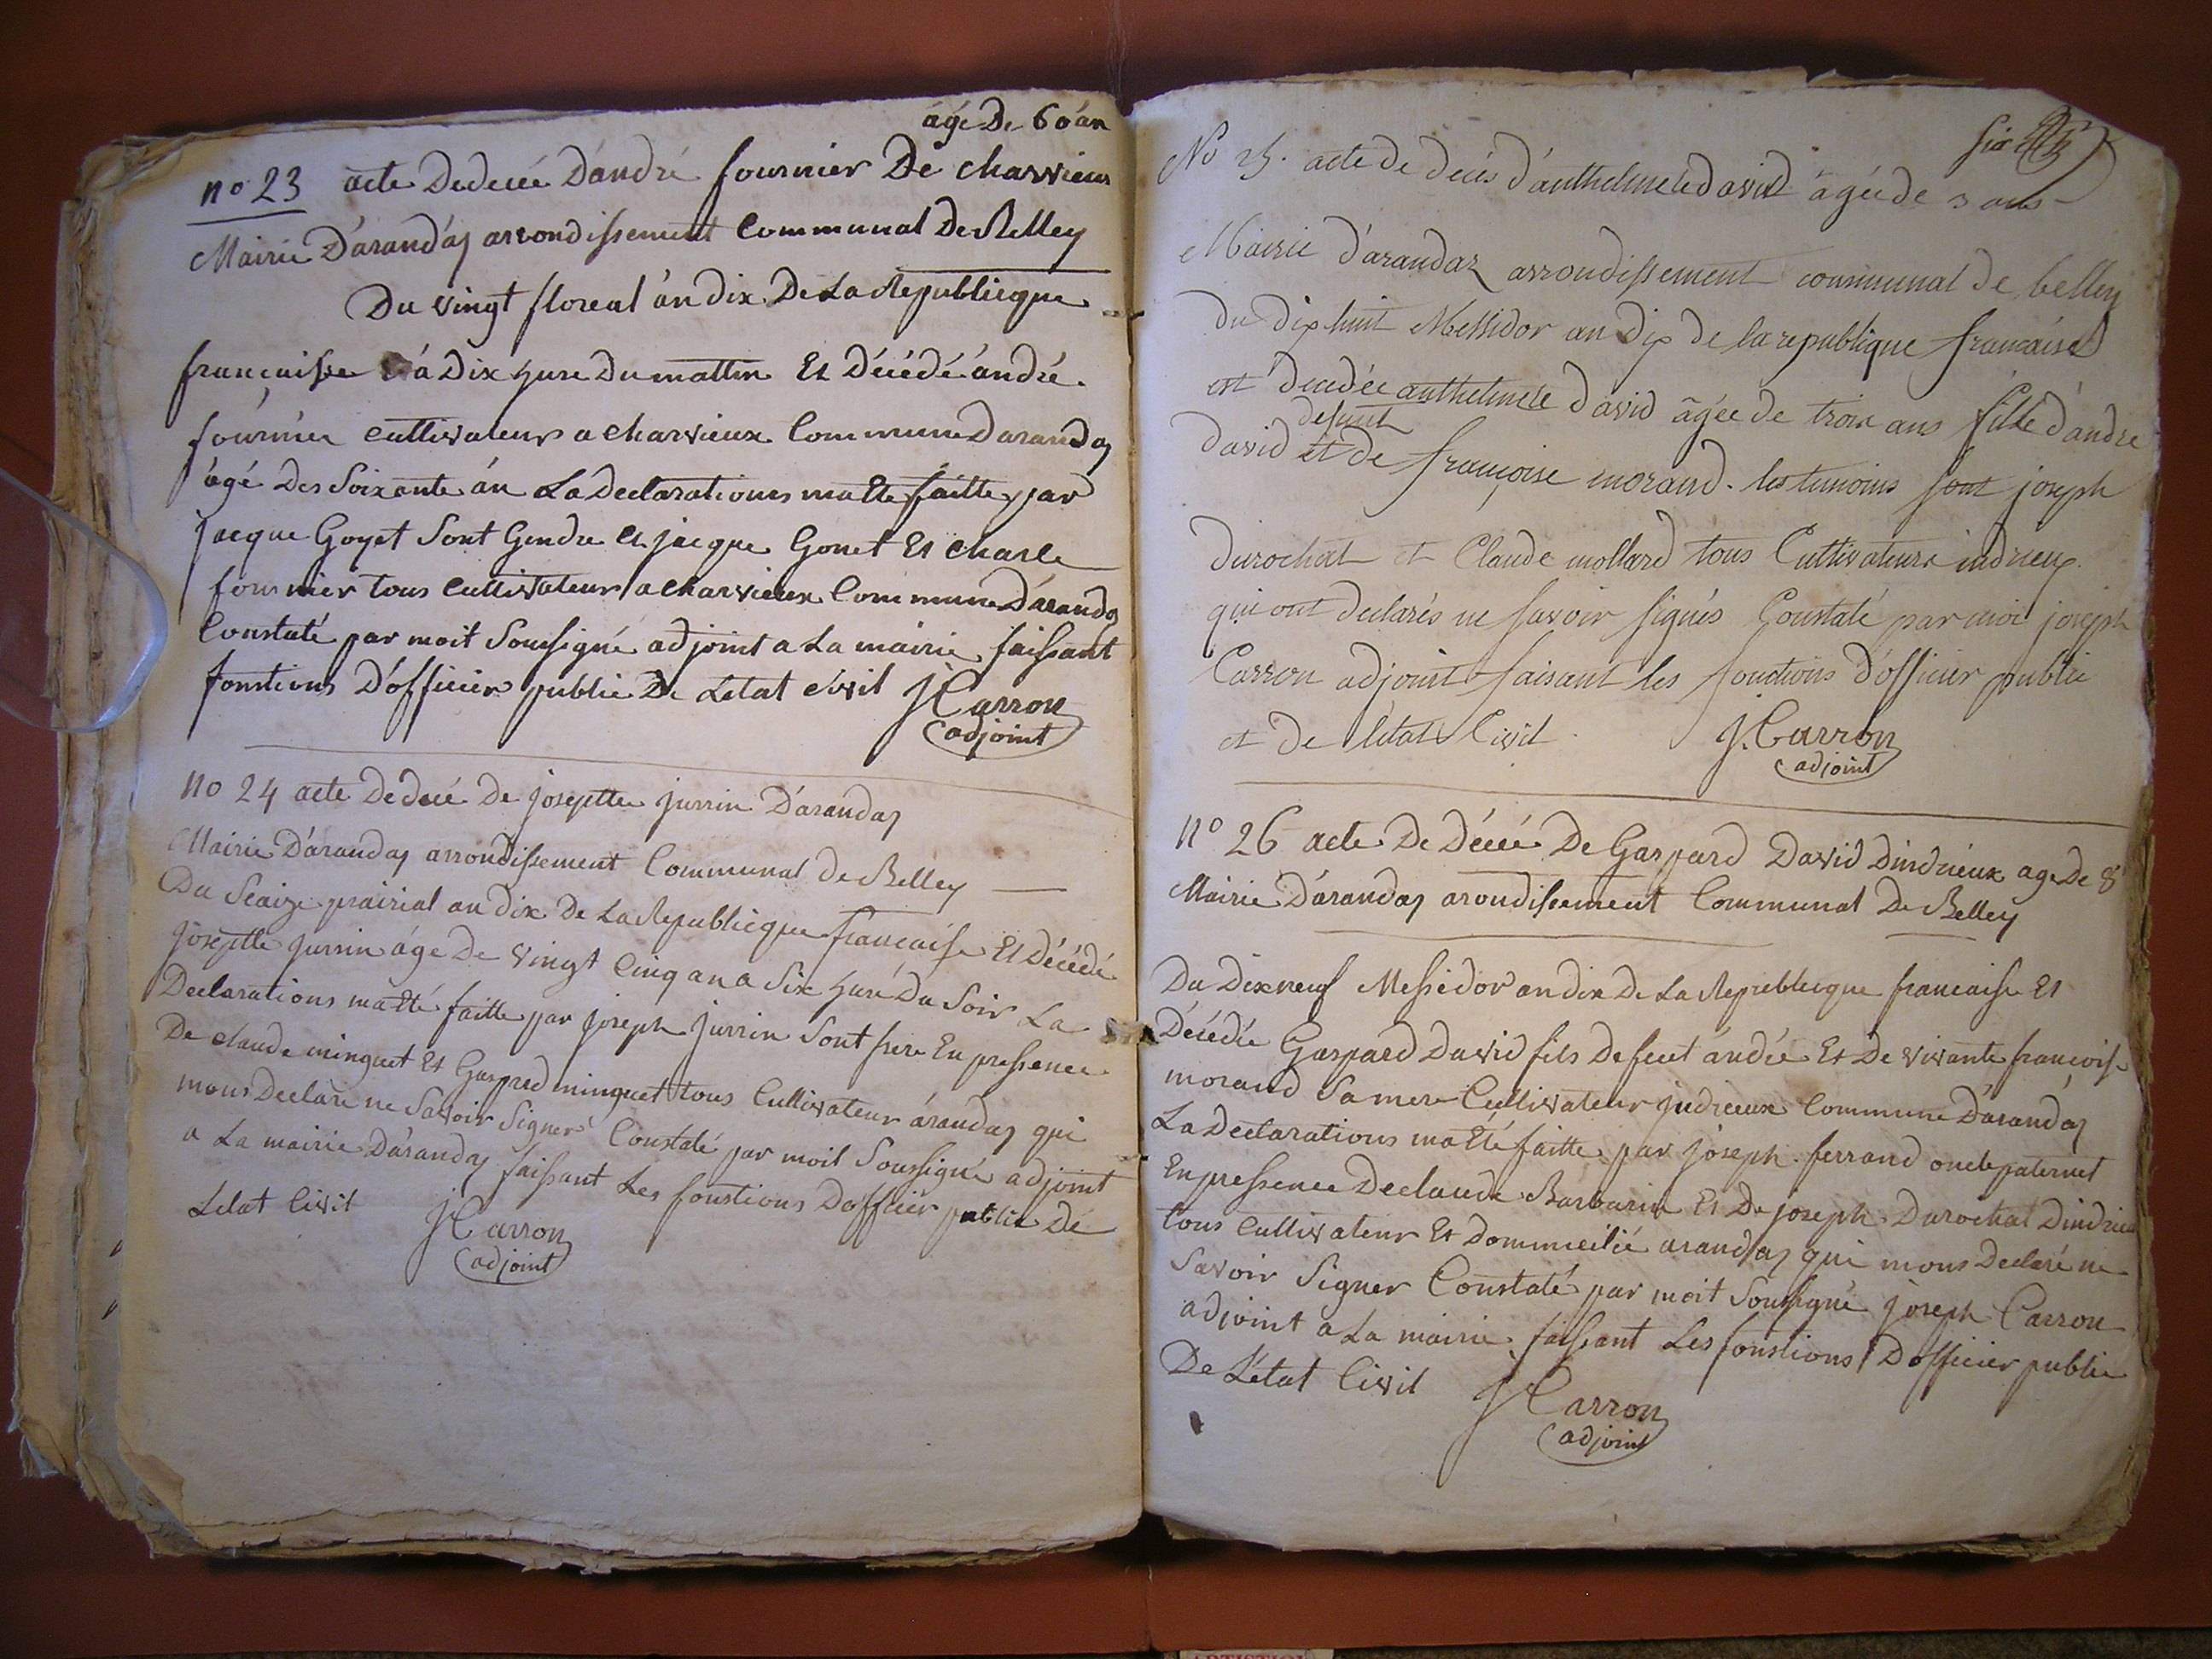 âgé De 60 an
no 23 acte Dedecée D'andré fournier De charvieux
Mairie D'arandas arrondissement Communal De Belley
Du vingt floreal án dix De La Republicque
françaisse á Dix hure Du mattin Et Décédé ándré
fournier cultivateur a charvieux Commune Darandas
âgé Des Soixante án La Declarations ma Ete faitte par
jacque Goyet Sont Gendre et jacque Gonet Et charle
fournier tous Cultivateur a charvieux Commune D'arandas
Constaté par moit Soussigné adjoint a La mairie faissant
fonstions D'officier public De Letat civil J Carron
adjoint
no 24 acte Dedecé De joseptte jurrin D'arandas
Mairie D'arandas arrondissement Communal de Belley
Du Seaize prairial an dix De La Republicque francaise Et Décédé
joseptte jurrin áge De vingt Cinq an a Six huré Du Soir La
Declarations ma Eté faitte par joseph jurrin Sont frere En pressence
De claude minguet Et Gaspred minguet tous Cultivateur árandas qui
mons Declare ne Savoir Signer Constaté par moit Soussigné adjoint
a La mairie D'arandas faissant Les fonstions Dofficier public De
Letat Civil J Carron
adjoint
six
No 25. acte de decès d'anthelmete david âgée de 3 ans
Mairie d'arandaz arrondissement communal de belley
du dix huit Messidor an dix de la republique française
est decedée anthelmete david âgée de trois ans fille d'andre
defunt
david et de françoise morand. les temoins sont joseph
durochat et Claude mollard tous Cultivateurs indrieux
qui ont declarés ne savoir signés Constaté par moi joseph
Carron adjoint faisant les fonctions d'officier public
et de l'état Civil. J. Carron
adjoint
no 26 acte De Décée De Gaspard David Dindrieux age De 8
Mairie D'arandas arondissement Communal De Belley
Du Dix neuf Messidor an dix De La Republicque francaise Et
Décédée Gaspard David fils De feut ándée Et De vivante francoise
morand Sa mere Cultivateur jndrieux Commune D'arandas
La Declarations ma Eté faitte par joseph ferrand oncle paternel
En pressence De claude Barbarin Et De joseph Durochat Dindrieu
tous Cultivateur Et Dommicilié arandas qui mons Declaré ne
Savoir Signer Constaté par moit Soussigné joseph Carron
adjoint a La mairie faissant Les fonstions D officier public
De L'état Civil J Carron
adjoint